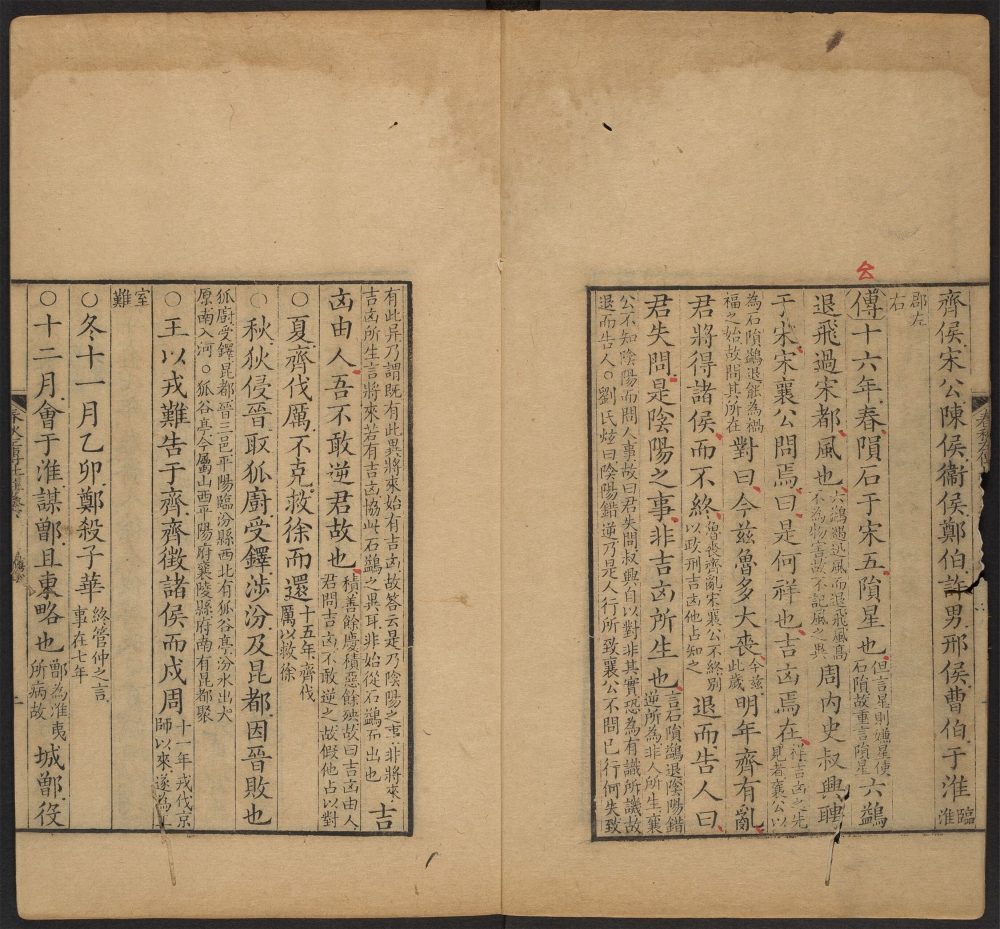 齊侯宋公陳侯衞侯鄭伯許男邢侯曹伯于淮臨淮
郡左右
傳十六年春隕石于宋五隕星也但言星則嫌星使石隕故重言隕星六鷁
退飛過宋都風也六鷁遇迅風而退飛風髙不為物害故不記風之異周内史叔興聘
于宋宋襄公問焉曰是何祥也吉凶焉在祥吉凶之先見者襄公以
為石隕鷁退能為禍福之始故問其所在對曰今兹魯多大喪今兹此歲明年齊有亂
君將得諸侯而不終魯喪齊亂宋襄公不終别以政刑吉凶他占知之退而告人曰
君失問是陰陽之事非吉凶所生也言石隕鷁退陰陽錯逆所為非人所生襄
公不知陰陽而問人事故曰君失問叔興自以對非其實恐為有識所譏故
退而告人○劉氏炫曰陰陽錯逆乃是人行所致襄公不問已行何失致
有此異乃謂既有此異將來始有吉凶故答云是乃陰陽之事非將來
吉凶所生言將來若有吉凶協此石鷁之異耳非始從石鷁而出也吉
凶由人吾不敢逆君故也積善餘慶積惡餘殃故曰吉凶由人君問吉凶不敢逆之故假他占以對
○夏齊伐厲不克救徐而還十五年齊伐厲以救徐
○秋狄侵晉取狐廚受鐸涉汾及昆都因晉敗也
狐廚受鐸昆都晉三邑平陽臨汾縣西北有狐谷亭汾水出太
原南入河○狐谷亭今屬山西平陽府襄陵縣府南有昆都聚
○王以戎難告于齊齊徴諸侯而戍周十一年戎伐京師以來遂為王
室難
○冬十一月乙卯鄭殺子華終管仲之言事在七年
○十二月會于淮謀鄫且東略也鄫為淮夷所病故城鄫役